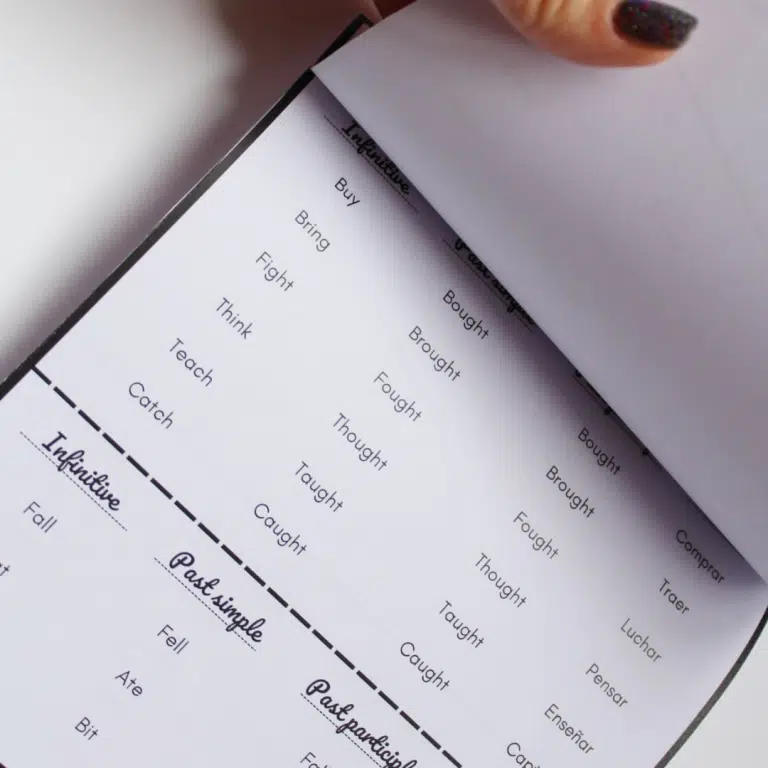 Infinitive Past simple
Buy Bought Bought Comprar
Bring Brought Brought Traer
Fight Fought Fought Luchar
Think Thought Thought Pensar
Teach Taught Taught Enseñar
Catch Caught Caught
Infinitive Past simple Past participle
Fall Fell
Ate
Bit